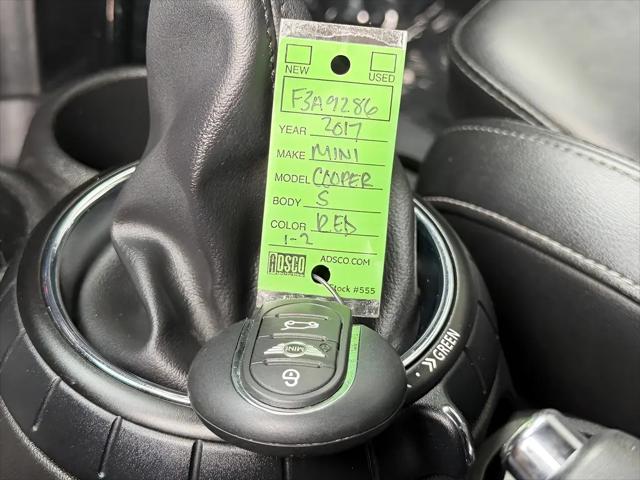 NEW USED
F3A9286
YEAR 2017
MAKE MINI
MODEL COOPER
BODY S
COLOR RED
1-2
ADSCO ADSCO.COM
Stock #555
MINI
»GREEN